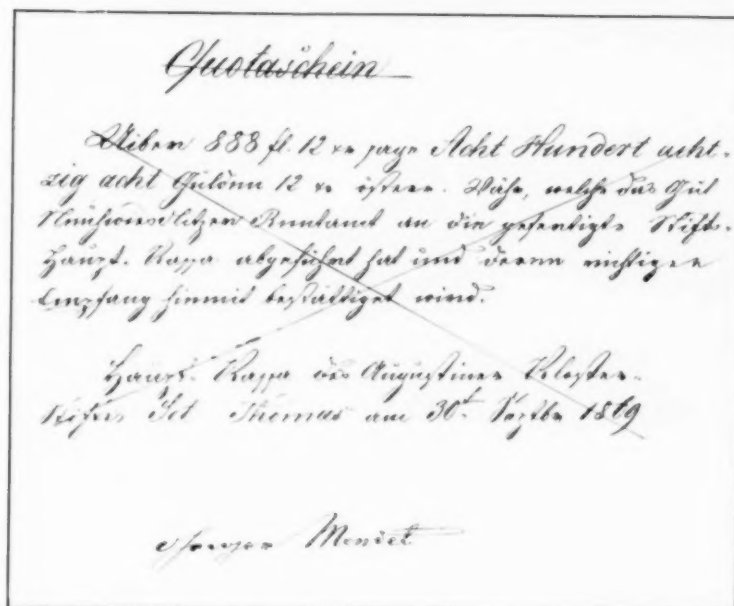 Quotaschein
Über 888 fl. 12 xr sage Acht Hundert acht-
zig acht Gulden 12 xr österr. Währ, welche das Gut
Rentamt an die gefertigte Stifts-
Haupt-Kassa abgeführt hat und deren richtiger
Empfang hiemit bestättiget wird.
Haupt-Kassa des Augustiner Kloster-
Stiftes Sct Thomas am 30t. Septbr 1869
Gregor Mendel